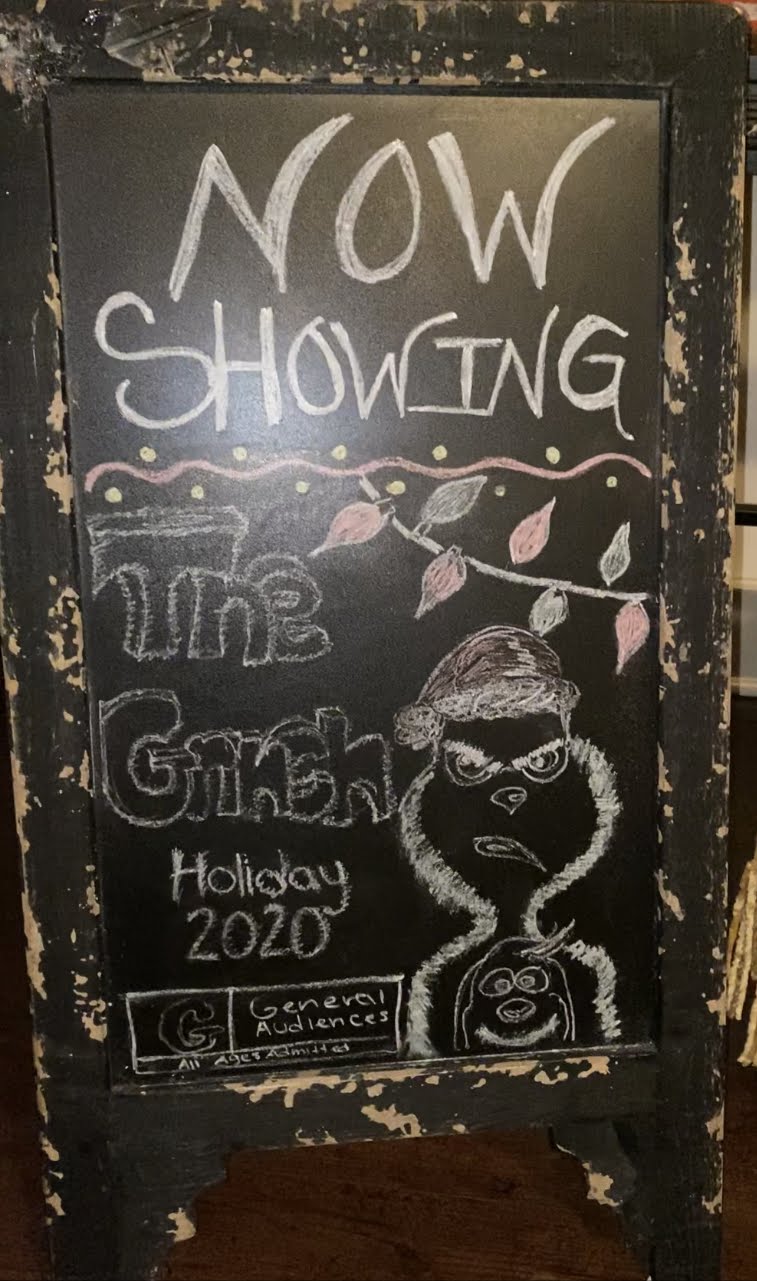 NOW
SHOWING
The
Grinch
Holiday
2020
G
General
Audiences
All Ages Admitted